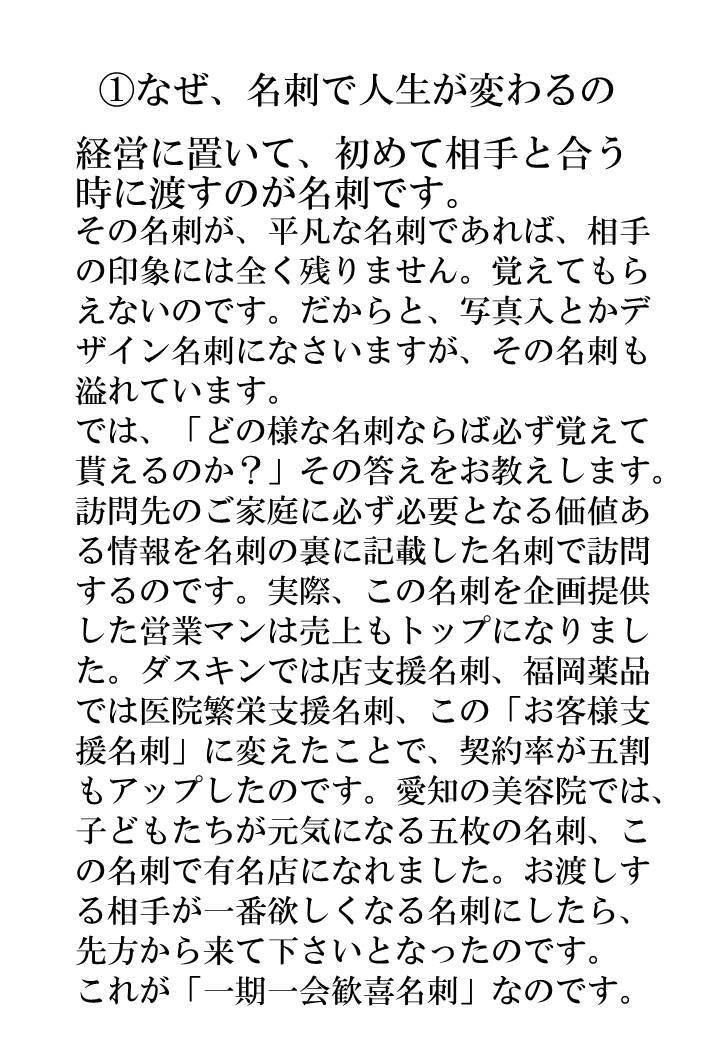 ①なぜ、名刺で人生が変わるの
経営に置いて、初めて相手と合う
時に渡すのが名刺です。
その名刺が、平凡な名刺であれば、相手
の印象には全く残りません。覚えてもら
えないのです。だからと、写真入とかデ
ザイン名刺になさいますが、その名刺も
溢れています。
では、「どの様な名刺ならば必ず覚えて
貰えるのか？」その答えをお教えします。
訪問先のご家庭に必ず必要となる価値あ
る情報を名刺の裏に記載した名刺で訪問
するのです。実際、この名刺を企画提供
した営業マンは売上もトップになりまし
た。ダスキンでは店支援名刺、福岡薬品
では医院繁栄支援名刺、この「お客様支
援名刺」に変えたことで、契約率が五割
もアップしたのです。愛知の美容院では、
子どもたちが元気になる五枚の名刺、こ
の名刺で有名店になれました。お渡しす
る相手が一番欲しくなる名刺にしたら、
先方から来て下さいとなったのです。
これが「一期一会歓喜名刺」なのです。